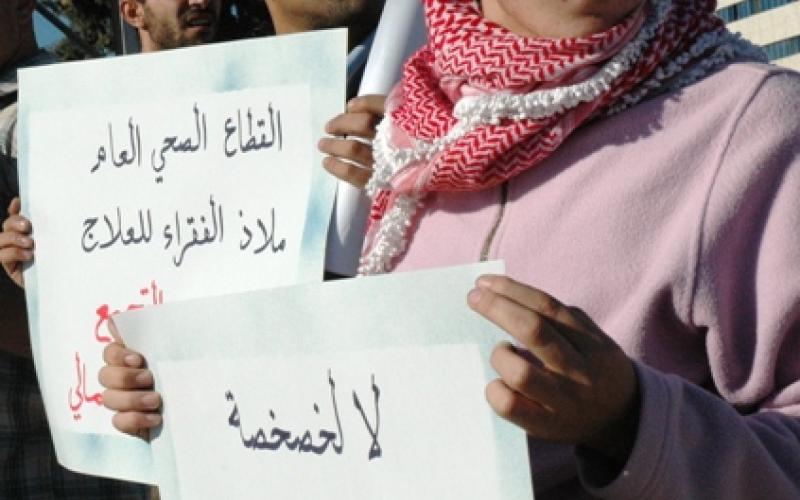 القطاع الصحي العام
ملاذ الفقراء للعلاج
التجمع
لا لخصخصة